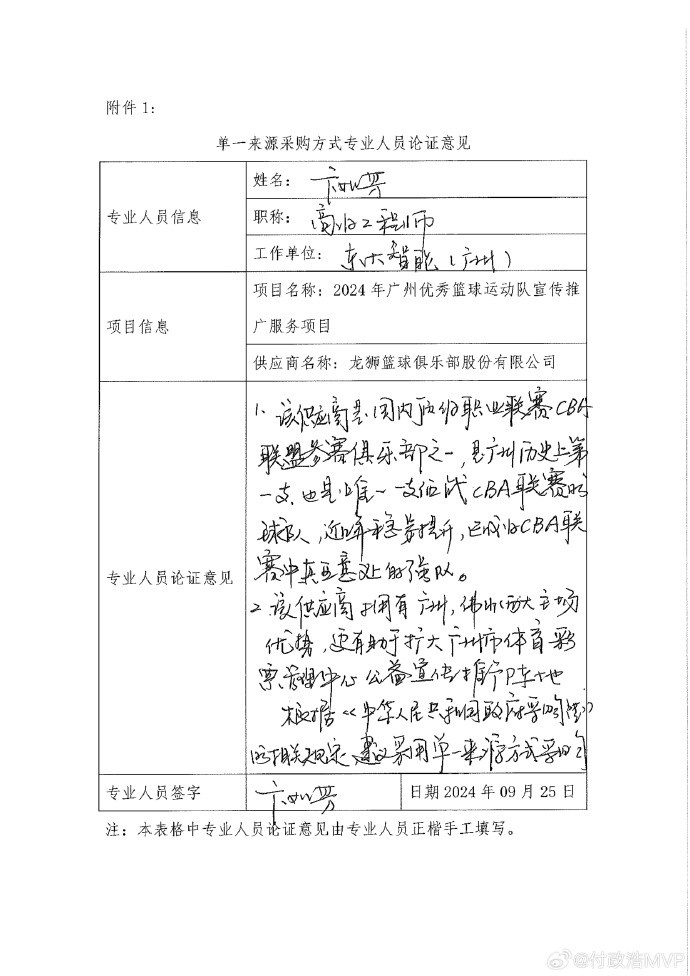 附件 1：
单一来源采购方式专业人员论证意见
专业人员信息
姓名：
职称：高级工程师
工作单位：东大智能（广州）
项目信息
项目名称：2024 年广州优秀篮球运动队宣传推
广服务项目
供应商名称：龙狮篮球俱乐部股份有限公司
专业人员论证意见
1. 该供应商是国内顶级职业联赛CBA
联盟参赛俱乐部之一，是广州历史上第
一支也是唯一一支征战CBA联赛的
球队，近年稳步提升，已成为CBA联
赛中真正意义上的强队。
2 该供应商拥有广州，佛山两大主场
优势，更有助于扩大广州市体育彩
票管理中心公益宣传推广阵地
根据《中华人民共和国政府采购法》
的相关规定 建议采用单一来源方式采购
专业人员签字
日期 2024 年 09 月 25 日
注：本表格中专业人员论证意见由专业人员正楷手工填写。
@付政浩MVP